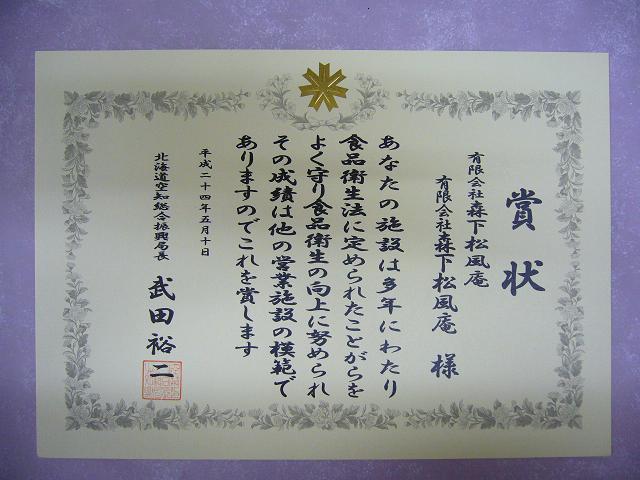 賞状
有限会社森下松風庵
有限会社森下松風庵 様
あなたの施設は多年にわたり
食品衛生法に定められたことがらを
よく守り食品衛生の向上に努められ
その成績は他の営業施設の模範で
ありますのでこれを賞します
平成二十四年五月十日
北海道空知総合振興局長 武田裕二